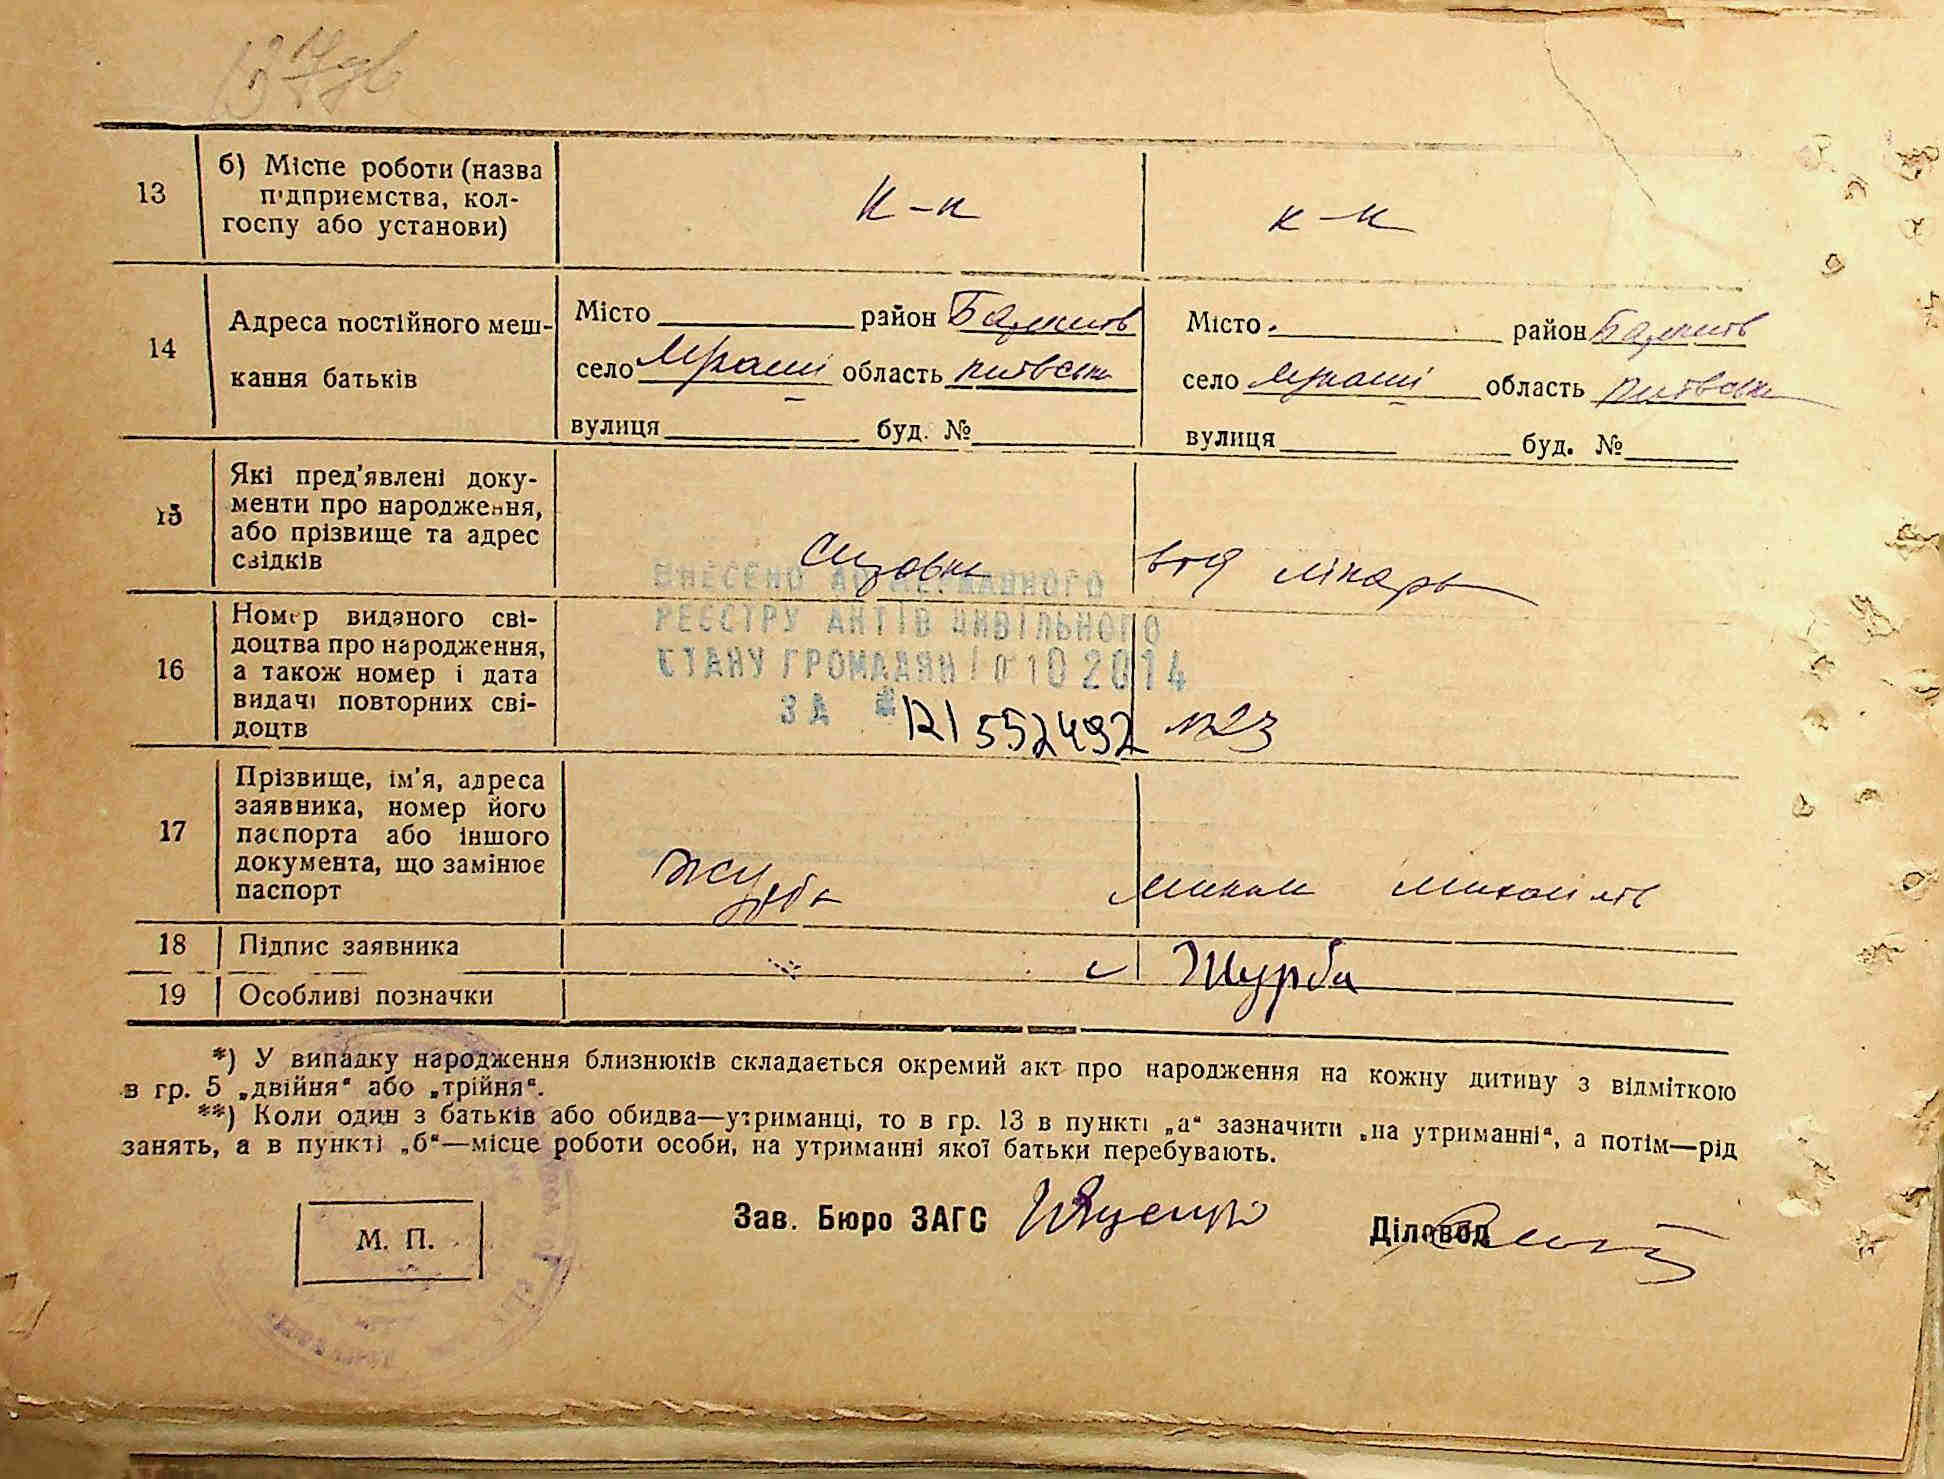 13
б) Місце роботи (назва
підприємства, кол-
госпу або установи)
к-к
к-к
14
Адреса постійного меш-
кання батьків
Місто район
село область
вулиця буд. №
Місто район
село область
вулиця буд. №
15
Які пред'явлені доку-
менти про народження,
або прізвище та адрес
свідків
від лікаря
16
Номер виданого сві-
доцтва про народження,
а також номер і дата
видачі повторних сві-
доцтв
ВНЕСЕНО ДО ДЕРЖАВНОГО
РЕЄСТРУ АКТІВ ЦИВІЛЬНОГО
СТАНУ ГРОМАДЯН 10 2014
ЗА №
№ 23
17
Прізвище, ім'я, адреса
заявника, номер його
паспорта або іншого
документа, що замінює
паспорт
Журба
18
Підпис заявника
Журба
19
Особливі позначки
*) У випадку народження близнюків складається окремий акт про народження на кожну дитину з відміткою
в гр. 5 „двійня“ або „трійня“.
**) Коли один з батьків або обидва—утриманці, то в гр. 13 в пункті „а“ зазначити „на утриманні“, а потім—рід
занять, а в пункті „б“—місце роботи особи, на утриманні якої батьки перебувають.
М. П.
Зав. Бюро ЗАГС
Діловод